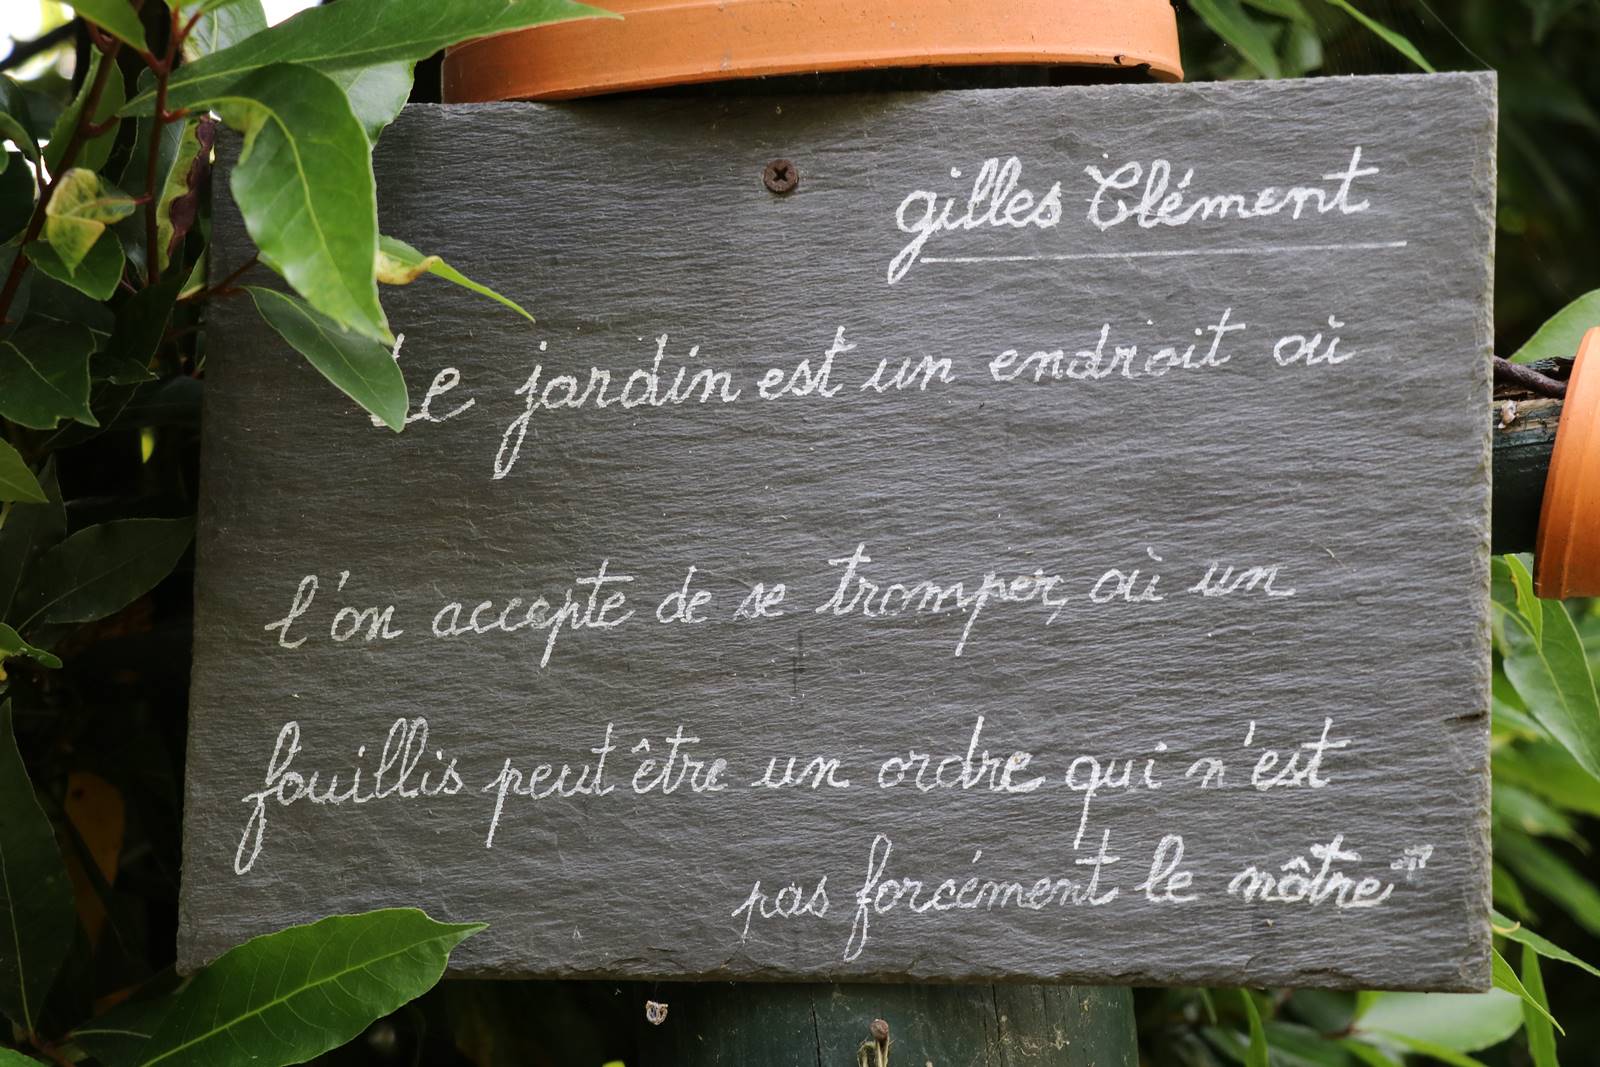 gilles Clément
Le jardin est un endroit où
l'on accepte de se tromper, où un
fouillis peut être un ordre qui n'est
pas forcément le nôtre